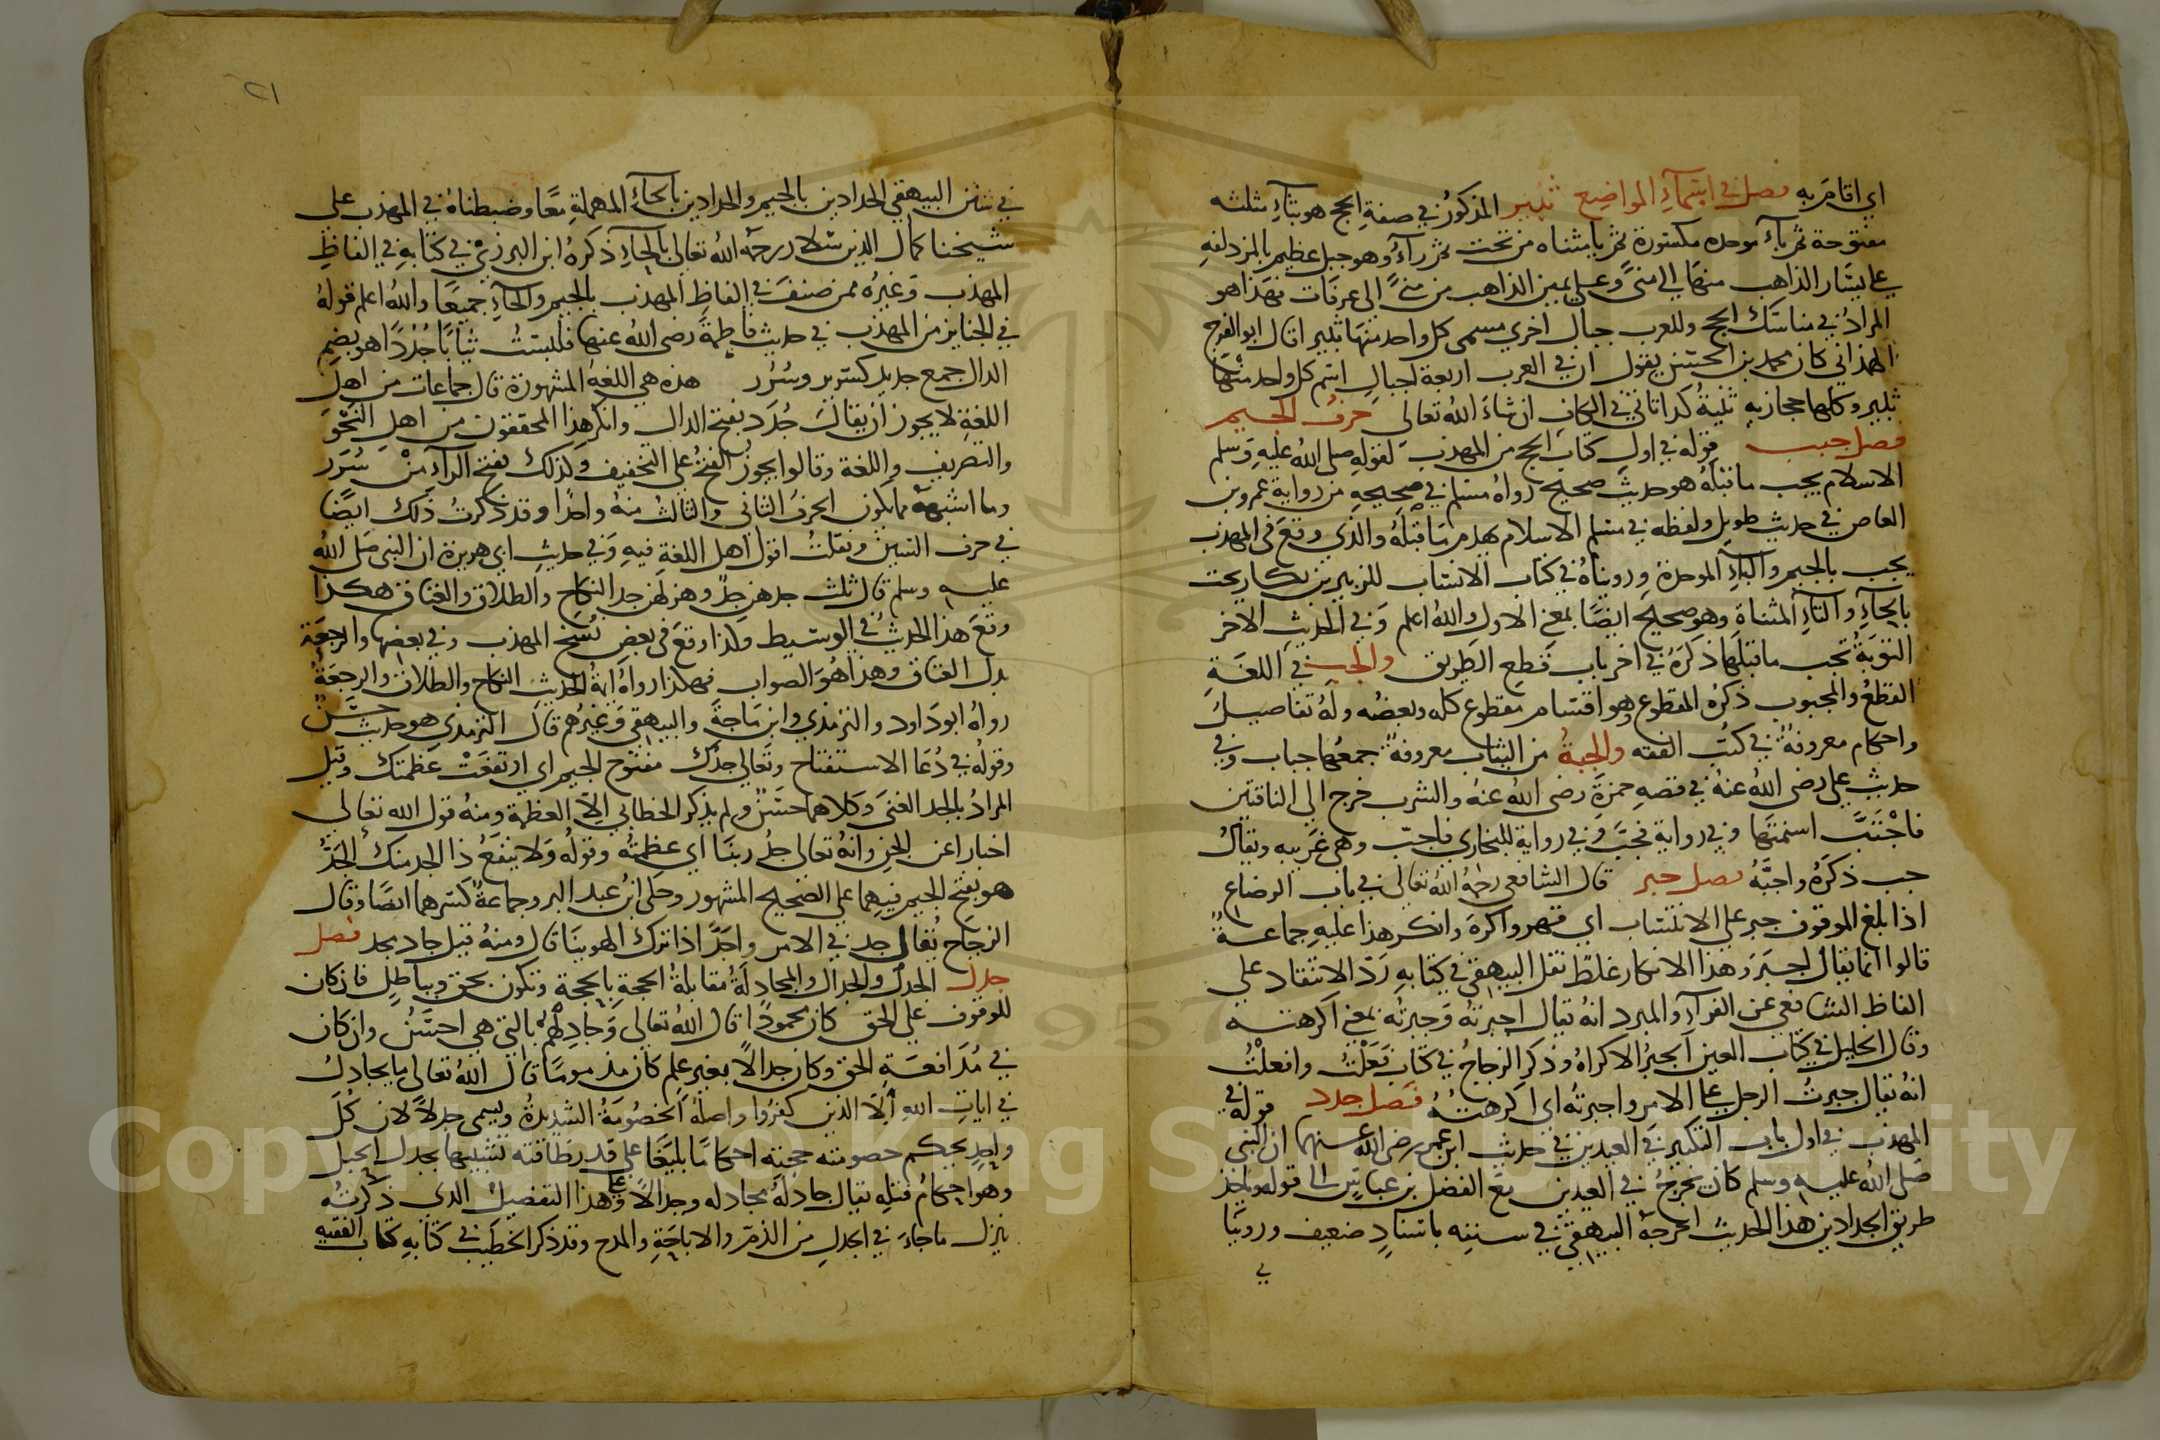 اي اقام به فصل في اسماء المواضع ثبير المذكور في صفة الحج هو بثاء مثلثه
مفتوحة ثم باء موحدة مكسورة ثم يا مثناه من تحت ثم راء وهو جبل عظيم بالمزدلفه
على يسار الذاهب منها الى منى وعلى يمين الذاهب من منى الى عرفات فهذا هو
المراد في مناسك الحج وللعرب جبال اخرى يسمى كل واحد منها ثبير اقال ابو الفتح
الهمذاني كان محمد بن الحسن يقول ان في العرب اربعة اجبال اسم كل واحد منها
ثبير وكلها حجازيه ثنية كدا تاتي في الكاف ان شاء الله تعالى حرف الجيم
فصل جبب قوله في اول كتاب الحج من المهذب لقوله صلى الله عليه وسلم
الاسلام يجب ما قبله هو حديث صحيح رواه مسلم في صحيحه من رواية عمرو بن
العاص في حديث طويل ولفظه في مسلم الاسلام يهدم ما قبله والذي وقع في المهذب
يجب بالجيم والباء الموحدة ورويناه في كتاب الانساب للزبير بن بكار يحت
بالحاء والتاء المثناة وهو صحيح ايضا بمعنى الاول والله اعلم وفي الحديث الاخر
التوبة تجب ما قبلها ذكره في اخر باب قطع الطريق والجب في اللغة
القطع والمجبوب ذكره المقطوع وهو اقسام مقطوع كله وبعضه وله تفاصيل
واحكام معروفة في كتب الفقه والجبة من الثياب معروفة جمعها جباب وفي
حديث علي رضى الله عنه في قصه حمزة رضى الله عنه والشرب خرج الى الناقتين
فاجتب اسنمتها وفي رواية فجب وفي رواية للبخاري فاجب وهي غريبه ويقال
جب ذكره واجبه فصل جبر قال الشافعي رحمه الله تعالى في باب الرضاع
اذا بلغ الموقوف جبر على الانتساب اي قهر واكره وانكر هذا عليه جماعة
قالوا انما يقال اجبر وهذا الانكار غلط نقل البيهقي في كتابه رد الانتقاد على
الفاظ الشافعي عن الفراء والمبرد انه يقال اجبرته وجبرته بمعنى اكرهته
وقال الخليل في كتاب العين الجبر الاكراه وذكر الزجاج في كتاب فعلت وافعلت
انه يقال جبرت الرجل على الامر واجبرته اى اكرهته فصل جدد قوله في
المهذب في اول باب التكبير في العيدين في حديث ابن عمر رضى الله عنهما ان النبي
صلى الله عليه وسلم كان يخرج في العيدين مع الفضل بن عباس الى قوله وياخذ
طريق الجدادين هذا الحديث اخرجه البيهقي في سننه باسناد ضعيف وروينا
في
٢١
في سنن البيهقي الجدادين بالجيم والحدادين بالحاء المهملة معا وضبطناه في المهذب على
شيخنا كمال الدين سلار رحمه الله تعالى بالحاء ذكره ابن البرزي في كتابه في الفاظ
المهذب وغيره ممن صنف في الفاظ المهذب بالجيم والحاء جميعا والله اعلم قوله
في الجنايز من المهذب في حديث فاطمة رضى الله عنها فلبست ثيابا جددا هو بضم
الدال جمع جديد كسرير وسرر هذه هي اللغة المشهورة قال جماعات من اهل
اللغة لا يجوز ان يقال جدد بفتح الدال وانكر هذا المحققون من اهل النحو
والتصريف واللغة وقالوا يجوز الفتح على التخفيف وكذلك بفتح الراء من سرر
وما اشبهه مما يكون الحرف الثاني والثالث منه واحدا وقد ذكرت ذلك ايضا
في حرف السين ونقلت اقوال اهل اللغة فيه وفي حديث ابي هريرة ان النبي صلى الله
عليه وسلم قال ثلث جدهن جد وهزلهن جد النكاح والطلاق والعتاق هكذا
وقع هذا الحديث في الوسيط وكذا وقع في بعض نسخ المهذب وفي بعضها والرجعة
بدل العتاق وهذا هو الصواب فهكذا رواه ايمة الحديث النكاح والطلاق والرجعة
رواه ابو داود والترمذي وابن ماجة والبيهقي وغيرهم قال الترمذي هو حديث حسن
وقوله في دعا الاستفتاح وتعالى جدك مفتوح الجيم اي ارتفعت عظمتك وقيل
المراد بالجد الغنى وكلاهما حسن ولم يذكر الخطابي الا العظمة ومنه قول الله تعالى
اخبارا عن الجن وانه تعالى جد ربنا اي عظمته وقوله ولا ينفع ذا الجد منك الجد
هو بفتح الجيم فيهما على الصحيح المشهور وحكى ابن عبد البر وجماعة كسرهما ايضا وقال
الزجاج يقال جد في الامر واجد اذا ترك الهوينا قال ومنه قيل جاد مجد فصل
جدل الجدل والجدال والمجادلة مقابلة الحجة بالحجة وتكون بحق وبباطل فان كان
للوقوف على الحق كان محمودا قال الله تعالى وجادلهم بالتي هي احسن وان كان
في مدافعة الحق وكان جدالا بغير علم كان مذموما قال الله تعالى ما يجادل
في ايات الله الا الذين كفروا واصله الخصومة الشديدة ويسمى جدلا لان كل
واحد يحكم خصومته وحجته احكاما بليغا على قدر طاقته تشبيها بجدل الحبل
وهو احكام فتله يقال جادله مجادله وجدالا وعلى هذا التفصيل الذي ذكرته
ينزل ما جاء في الجدل من الذم والاباحة والمدح وقد ذكر الخطيب في كتابه كتاب الفقيه
Copyright © King Saud University
1957